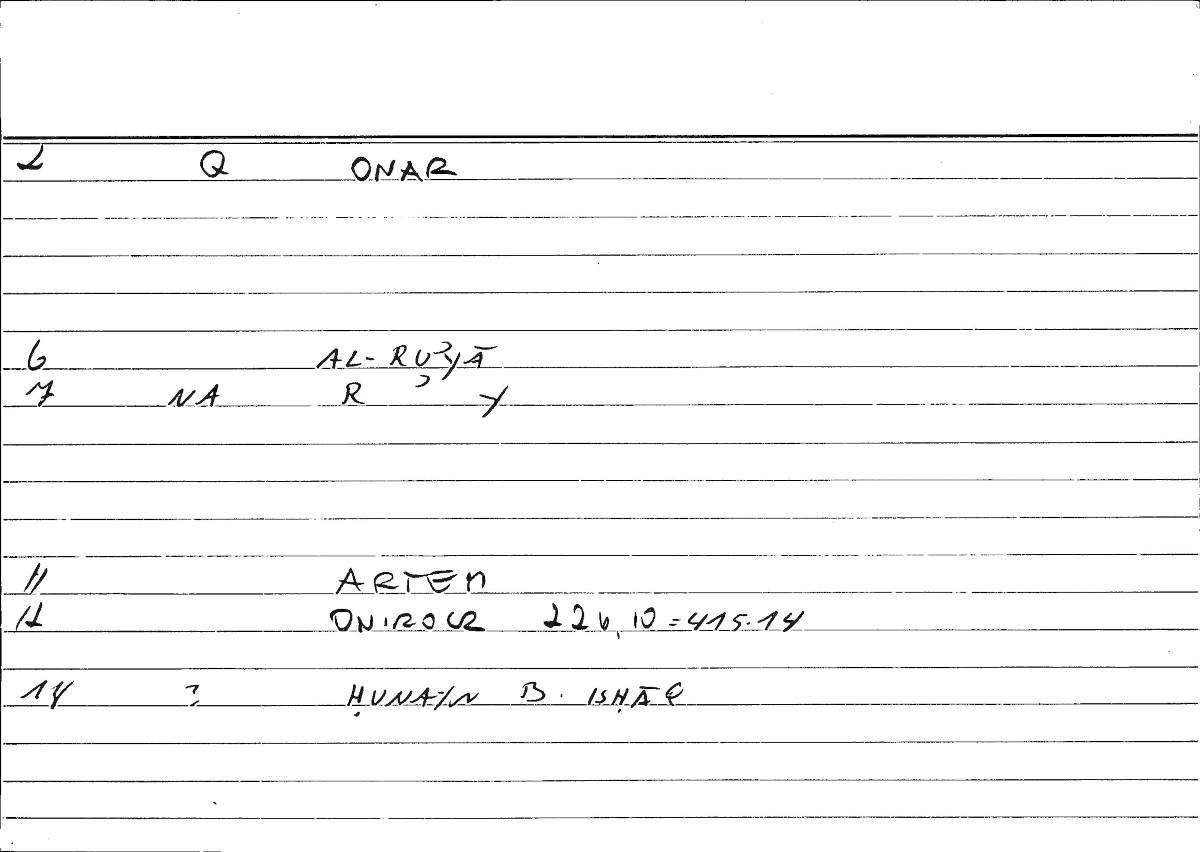 2 Q ONAR
6 AL-RUʾYĀ
7 NA R ʾ Y
11 ARTEM
12 ONIROCR 226,10=415.14
14 ? ḤUNAYN B. ISḤĀQ